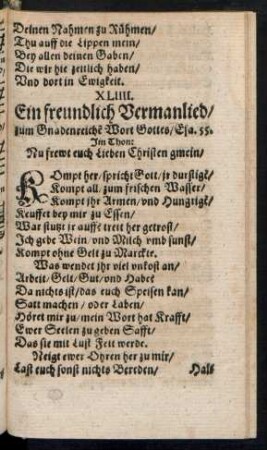 Deinen Nahmen zu Rühmen/
Thu auff die Lippen mein/
Bey allen deinen Gaben/
Die wir hie zeitlich haben/
Vnd dort in Ewigkeit.
XLIIII.
Ein freundlich Vermanlied/
zum Gnadenreichẽ Wort Gottes/Esa. 55.
Im Thon:
Nu frewt euch Lieben Christen gmein/
KOmpt her/spricht Gott/jr durstigẽ/
Kompt all/zum frischen Wasser/
Kompt jhr Armen/vnd Hungrigẽ/
Keuffet bey mir zu Essen/
War stutzt jr auff? treit her getrost/
Ich gebe Wein/vnd Milch vmb sunst/
Kompt ohne Gelt zu Marckte.
Was wendet jhr viel vnkost an/
Arbeit/Gelt/Gut/vnd Habe?
Da nichts ist/das euch Speisen kan/
Satt machen/oder Laben/
Höret mir zu/mein Wort hat Krafft/
Ewer Seelen zu geben Safft/
Das sie mit Lust Feit werde.
Neigt ewer Ohren her zu mir/
Last euch sonst nichts Bereden/ Halt